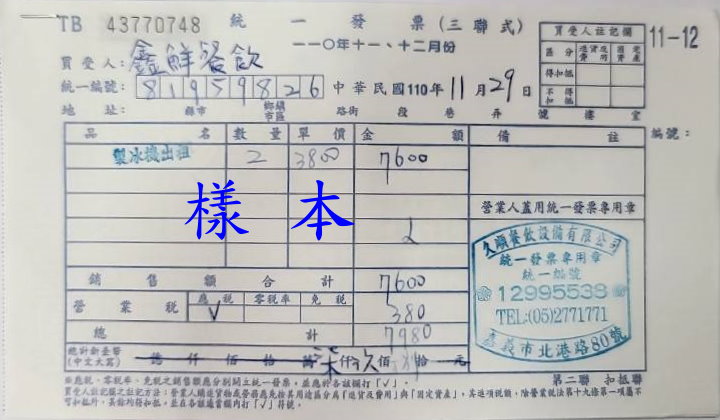 TB 43770748 統一發票(三聯式)
一一〇年十一、十二月份
11-12
買受人註記欄
區分 進貨及費用 固定資產
得扣抵
不得扣抵
買受人: 鑫鮮餐飲
統一編號: 81959826 中華民國110年11月29日
地址: 縣市 鄉鎮市區 路街 段 巷 弄 號 樓 室
品名 數量 單價 金額 備註 編號:
製冰機出租 2 3800 7600
樣本
營業人蓋用統一發票專用章
久順餐飲設備有限公司
統一發票專用章
統一編號
12995538
TEL:(05)2771771
嘉義市北港路80號
銷售額合計 7600
營業稅 應稅 √ 零稅率 免稅 380
總計 7980
總計新臺幣
(中文大寫) 億 仟 佰 拾 萬 柒 仟 玖 佰 捌 拾 元
第二聯 扣抵聯
※應稅、零稅率、免稅之銷售額應分別開立統一發票,並應於各該欄打「√」。
買受人註記欄之註記方法:營業人購進貨物或勞務應先按其用途區分為「進貨及費用」與「固定資產」,其進項稅額,除營業稅法第十九條第一項屬不
可扣抵外,其餘均得扣抵,並在各該適當欄內打「√」符號。